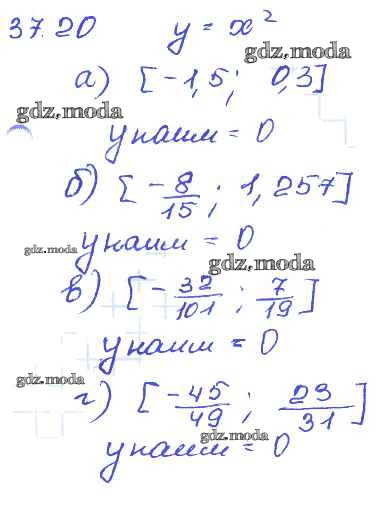 37.20 y = x²
gdz.moda
а) [-1,5; 0,3]
gdz.moda
y наим = 0
б) [-8/15; 1,257]
gdz.moda y наим = 0
gdz.moda
в) [-32/101; 7/19]
y наим = 0
gdz.moda
г) [-45/49; 23/31]
gdz.moda
y наим = 0